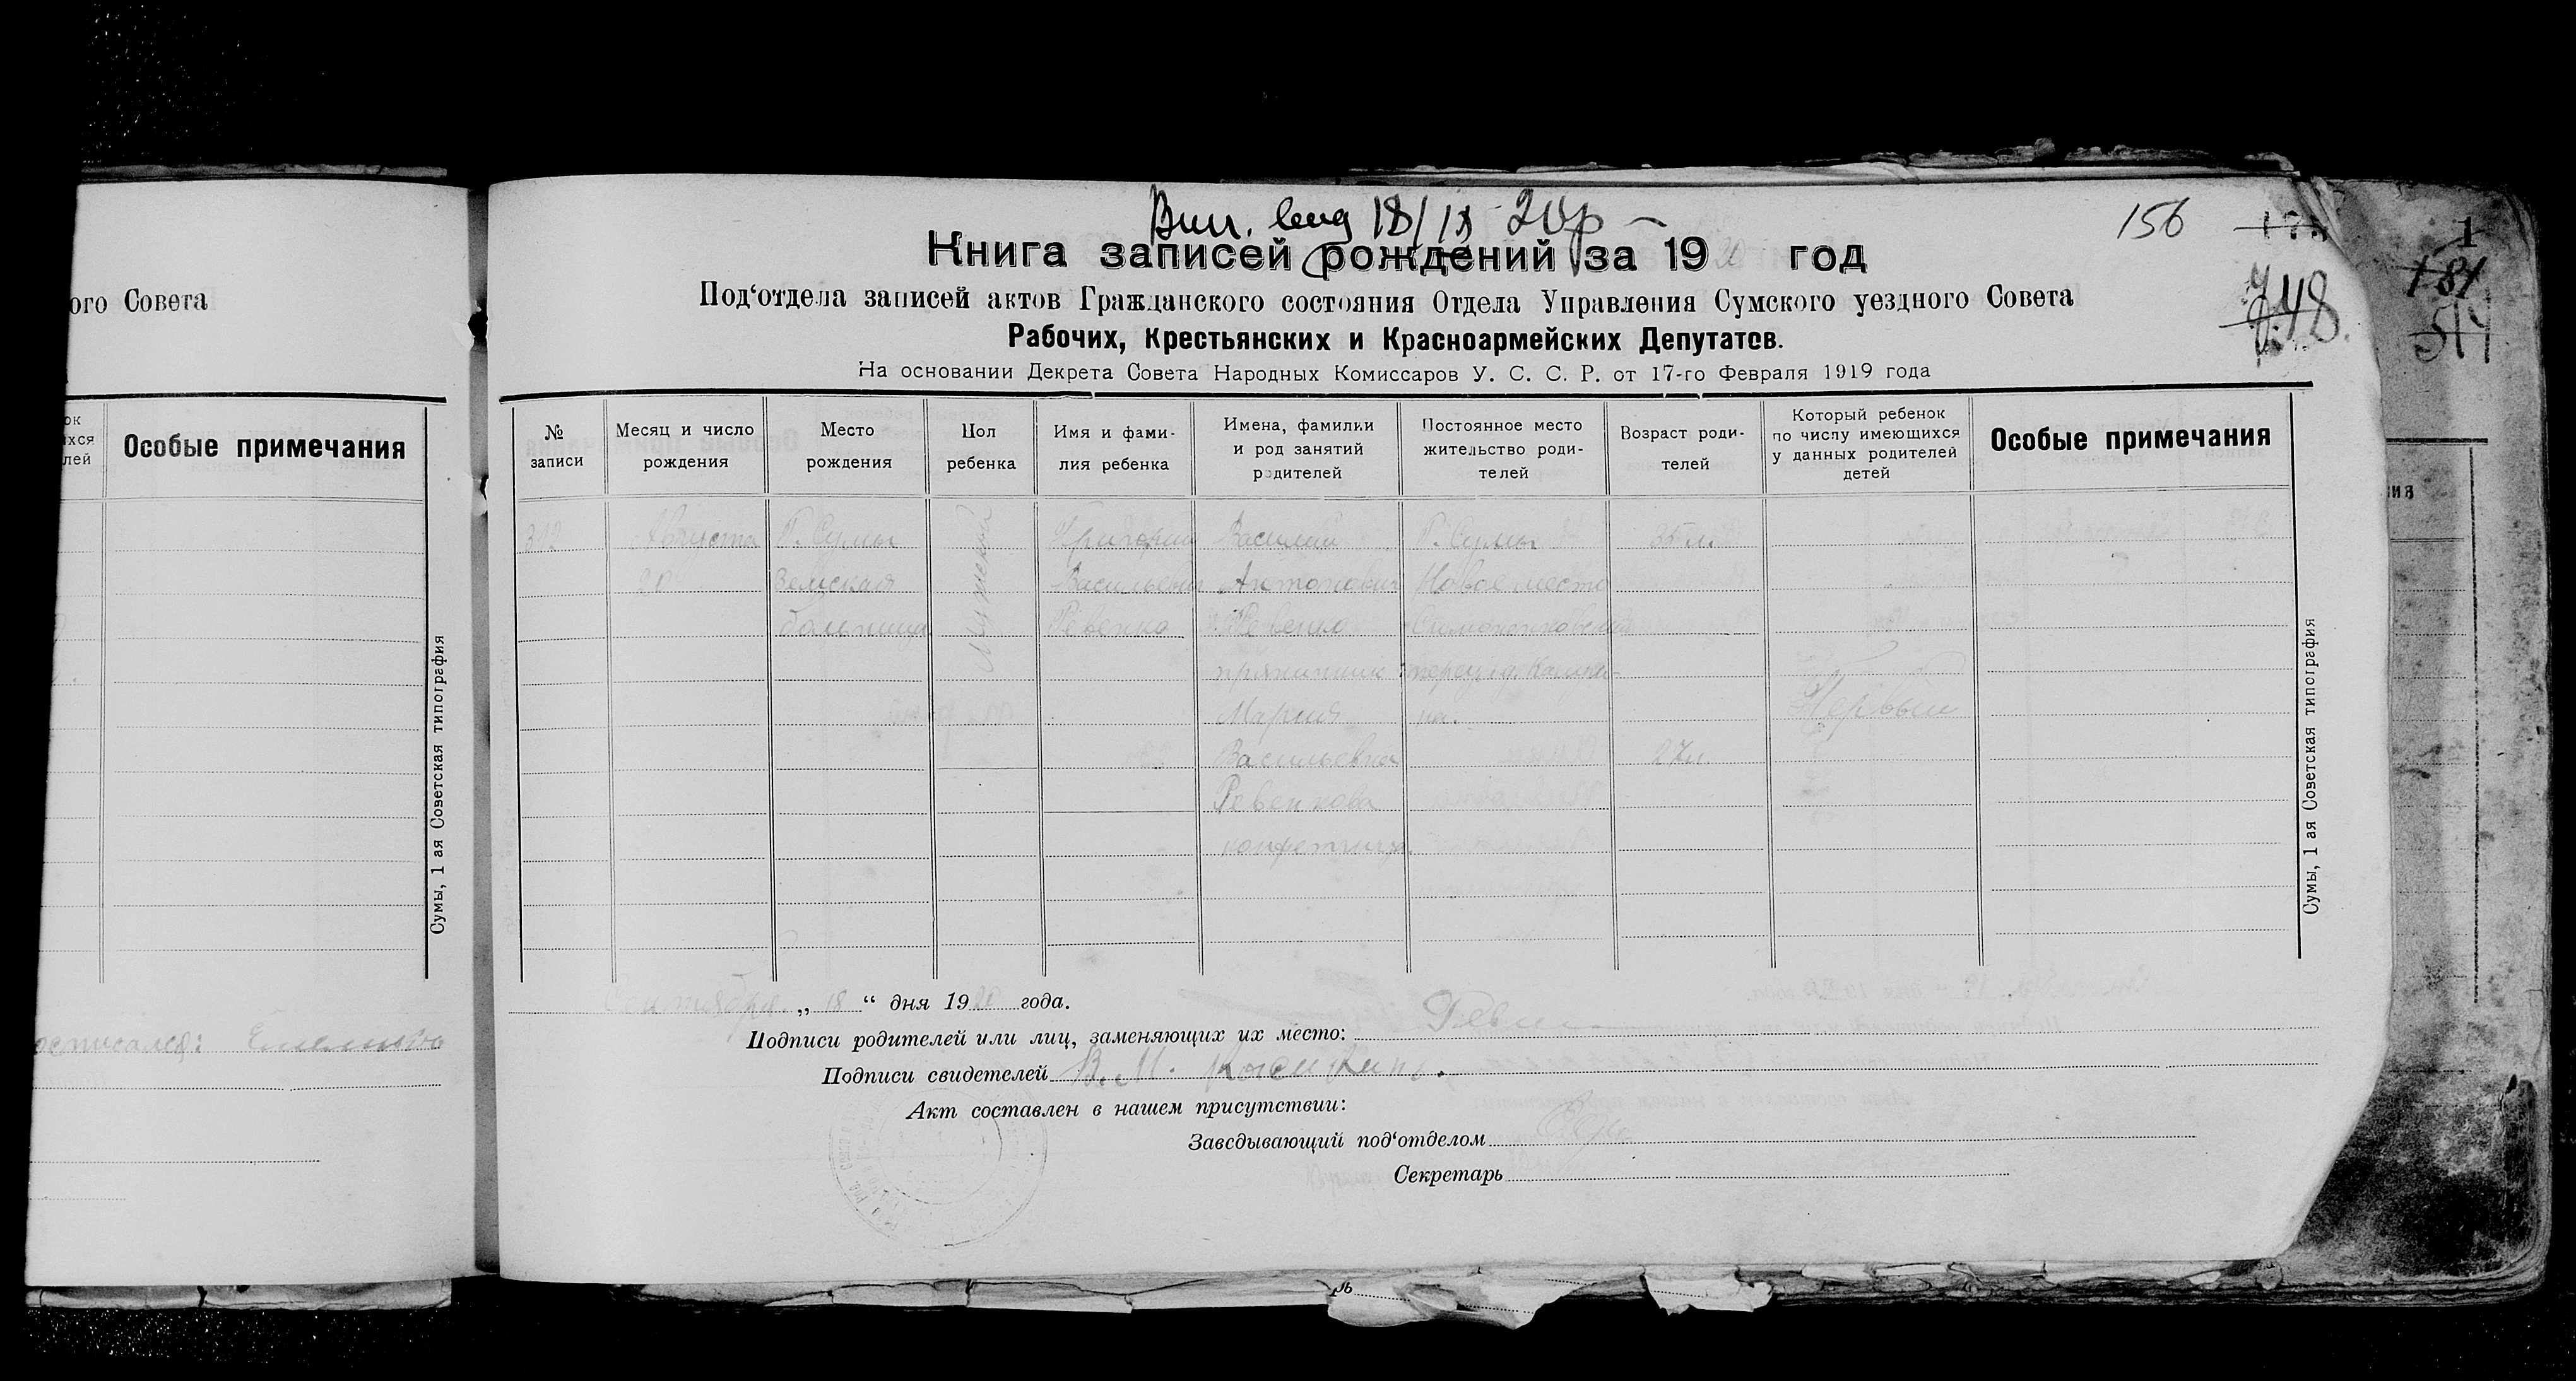 156
Книга записей рождений за 1920 год
Под‘отдела записей актов Гражданского состояния Отдела Управления Сумского уездного Совета
Рабочих, Крестьянских и Красноармейских Депутатов.
На основании Декрета Совета Народных Комиссаров У. С. С. Р. от 17-го Февраля 1919 года
ого Совета
748.
181
Особые примечания
№ записи
Месяц и число рождения
Место рождения
Пол ребенка
Имя и фами-
лия ребенка
Имена, фамилии
и род занятий
родителей
Постоянное место
жительство роди-
телей
Возраст роди-
телей
Который ребенок
по числу имеющихся
у данных родителей
детей
Особые примечания
Августа
20
Г. Сумы
Земская
больница
Мужской
Григорий
Васильевич
Ревенко
Василий
Антонович
Ревенко
пряничник
Мария
Васильевна
Ревенкова
конфетчица
Г. Сумы
Новое место
35 л.
27 л.
Первый
Сентября „ 18 “ дня 1920 года.
Подписи родителей или лиц, заменяющих их место:
Подписи свидетелей В. М.
Акт составлен в нашем присутствии:
Заведывающий под‘отделом
Секретарь
Сумы, 1 ая Советская типография
Сумы, 1 ая Советская типография